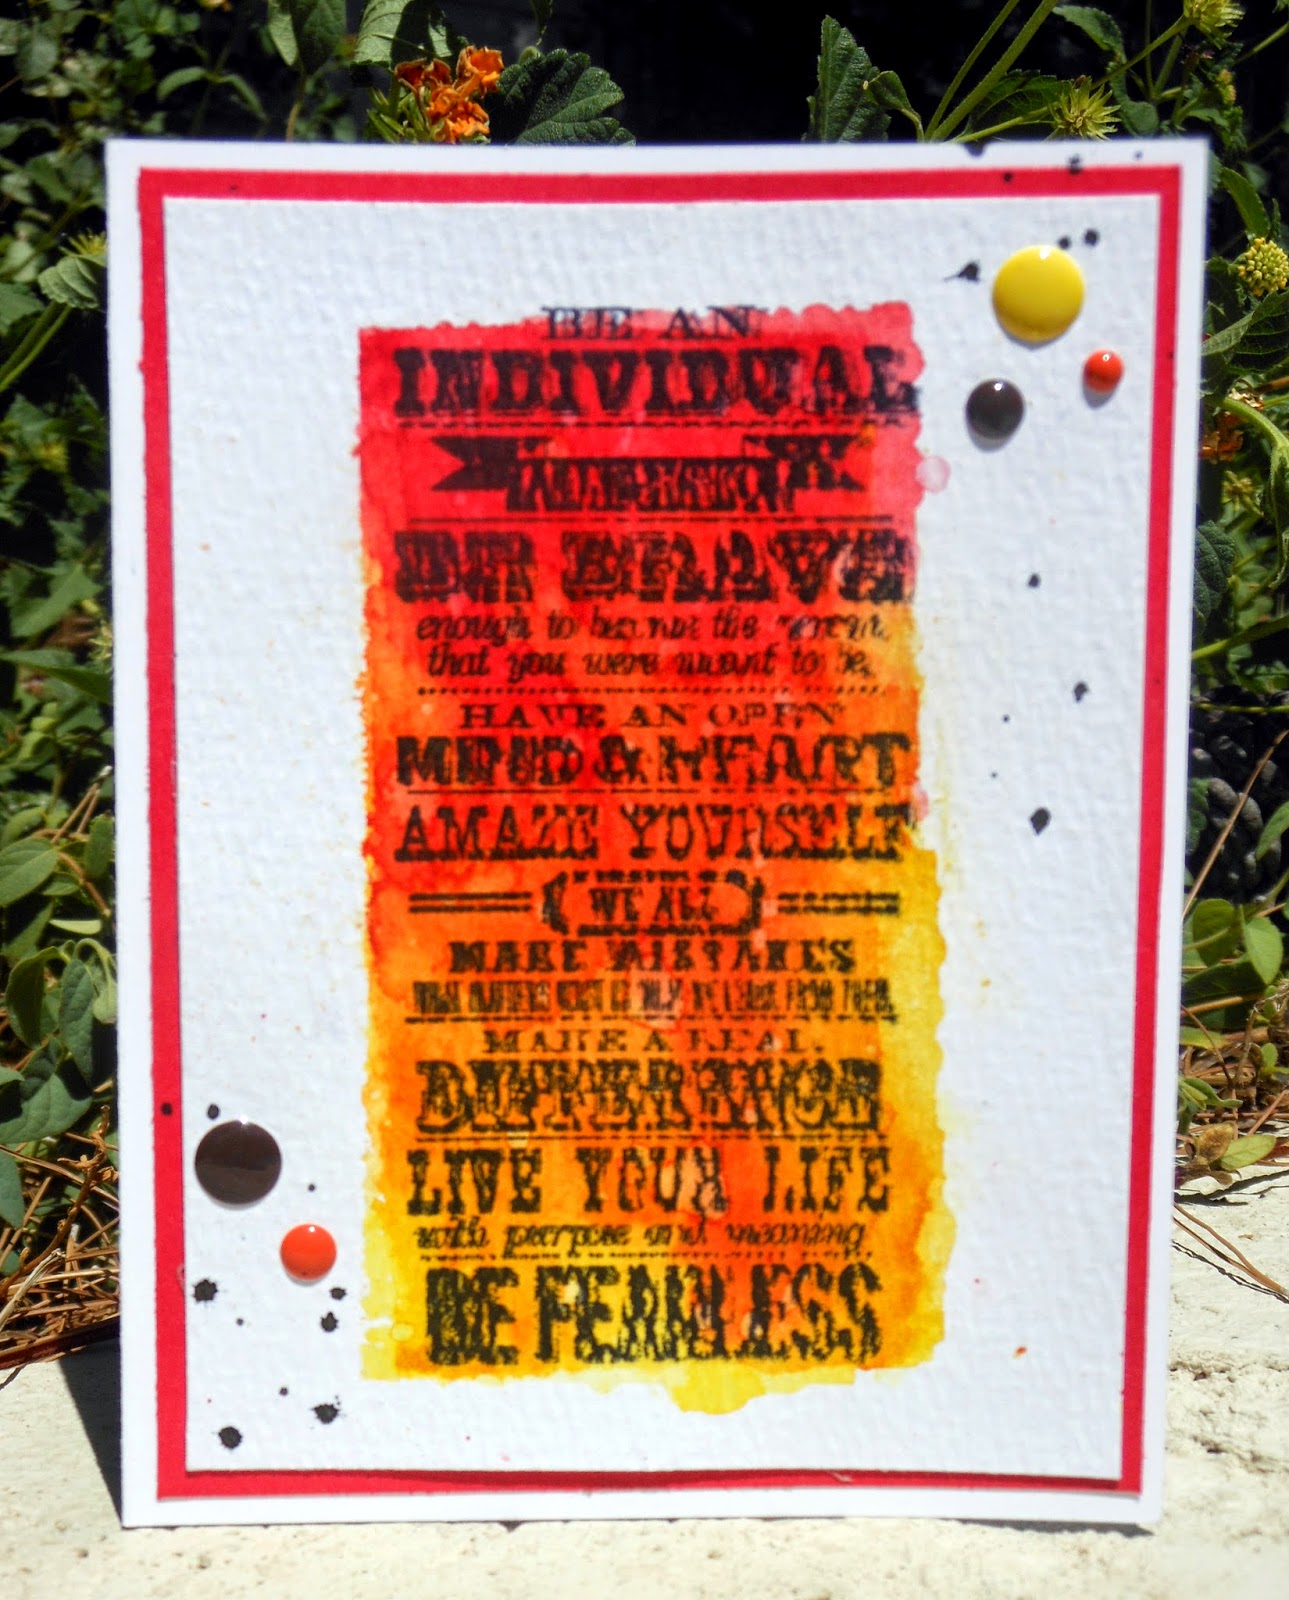 BE AN
INDIVIDUAL
BE BRAVE
enough to become the person
that you were meant to be,
HAVE AN OPEN
MIND & HEART
AMAZE YOURSELF
WE ALL
MAKE MISTAKES
WHAT MATTERS MOST IS THAT WE LEARN FROM THEM,
MAKE A REAL
DIFFERENCE
LIVE YOUR LIFE
with purpose and meaning
BE FEARLESS